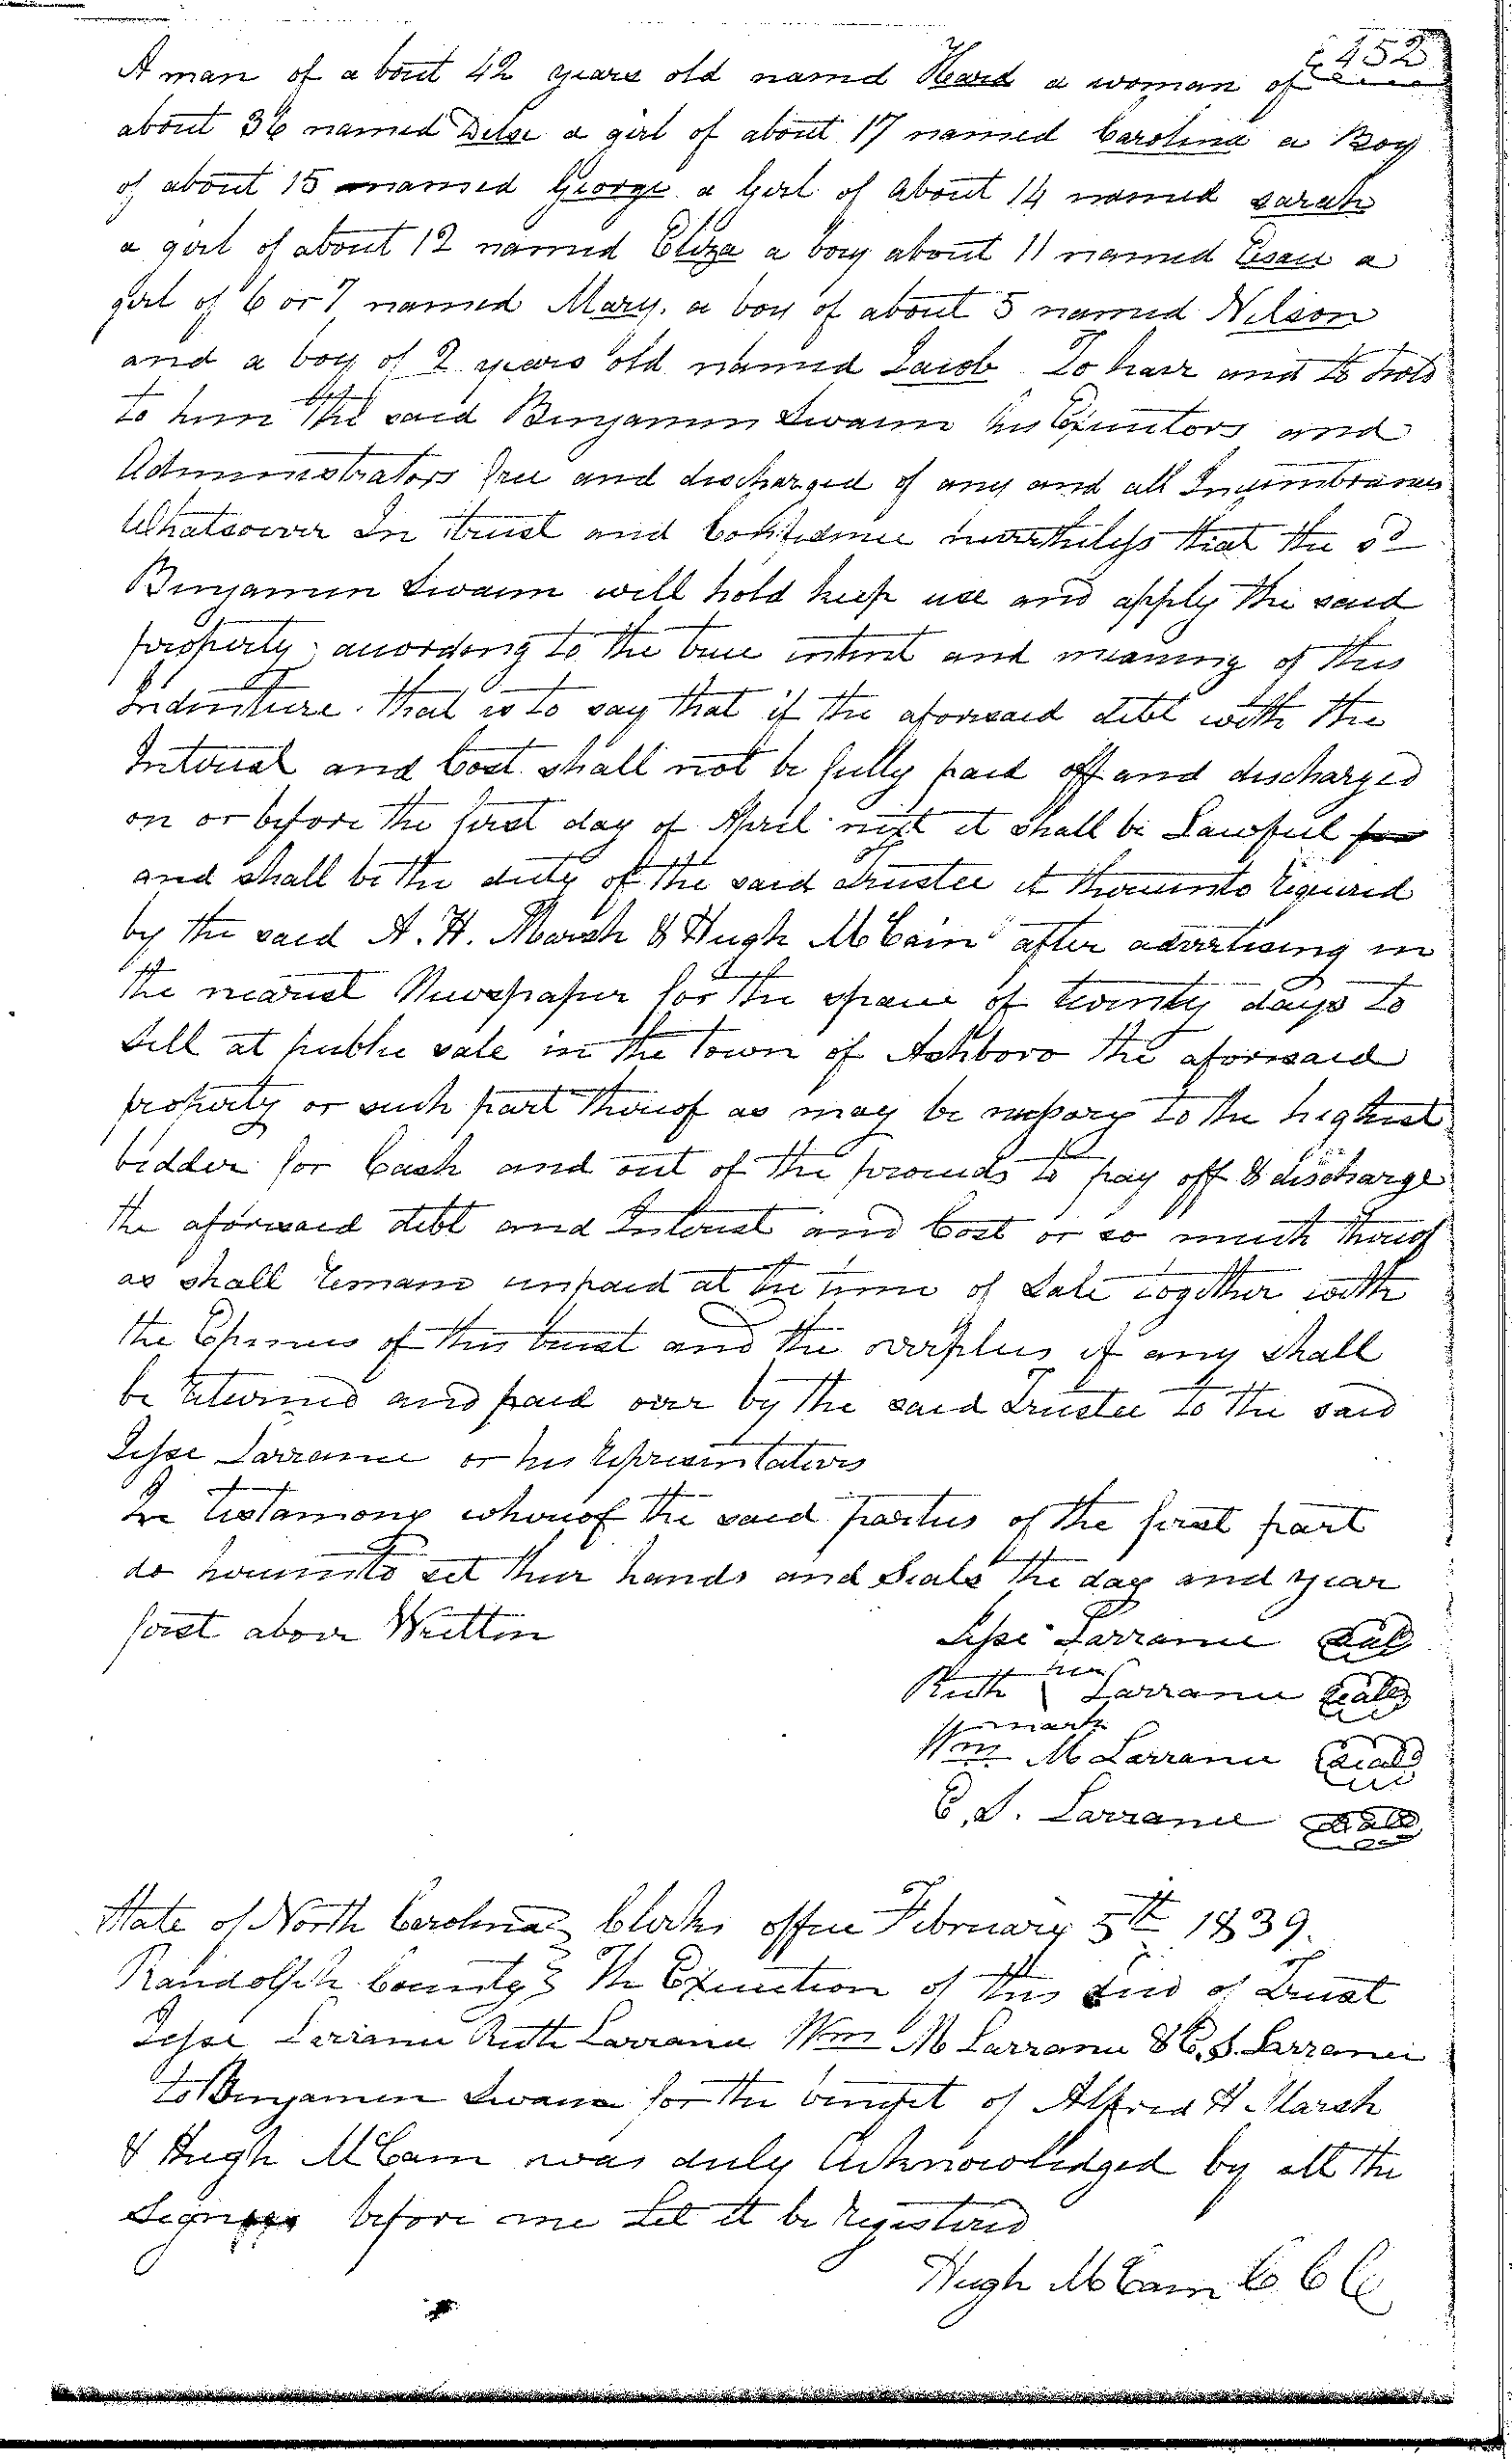 452
A man of about 42 years old named Heard a woman of
about 36 named Delse a girl of about 17 named Carolina a Boy
of about 15 named George a Girl of about 14 named sarah
a girl of about 12 named Eliza a boy about 11 named Esau a
girl of 6 or 7 named Mary. a boy of about 5 named Nelson
and a boy of 2 years old named Jacob To have and to hold
to him the said Benjamin Swaim his Executors and
Administrators free and discharged of any and all Incumbrances
Whatsoever In trust and Confidence nevertheless that the sd
Benjamin Swaim will hold keep use and apply the said
property, according to the true intent and meaning of this
Indenture. that is to say that if the aforesaid debt with the
Interest and Cost shall not be fully paid off and discharged
on or before the first day of April next it shall be Lawful for
and shall be the duty of the said Trustee it thereunto required
by the said A. H. Marsh & Hugh McCain after advertising in
the nearest Newspaper for the space of twenty days to
Sell at public sale in the Town of Ashboro the aforesaid
property or such part thereof as may be necessary to the highest
bidder for Cash and out of the proceeds to pay off & discharge
the aforesaid debt and Interest and Cost or so much thereof
as shall remain unpaid at the time of Sale together with
the Expenses of this trust and the overplus if any shall
be returned and paid over by the said Trustee to the said
Jesse Larrance or his representatives
In testamony whereof the said parties of the first part
do hereunto set their hands and Seals the day and year
first above Written
Jesse Larrance Seal
Ruth her Larrance Seal
mark
Wm M Larrance Seal
C. S. Larrance Seal
State of North Carolina Clerks office February 5th 1839.
Randolph County The Execution of this deed of Trust
Jesse Larrance Ruth Larrance Wm M Larrance & C. S. Larrance
to Benjamin Swaim for the benefit of Alfred H Marsh
& Hugh McCain was duly Acknowledged by all the
before me Let it be registered
Hugh McCain C C C